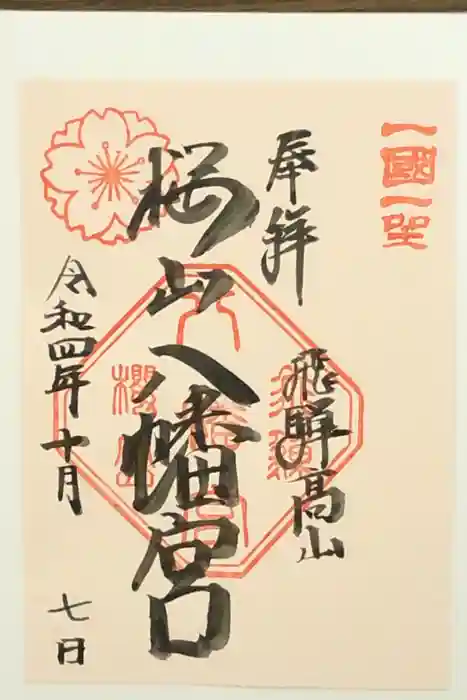 一國一聖
奉拝
飛騨高山
桜山八幡宮
令和四年十月七日